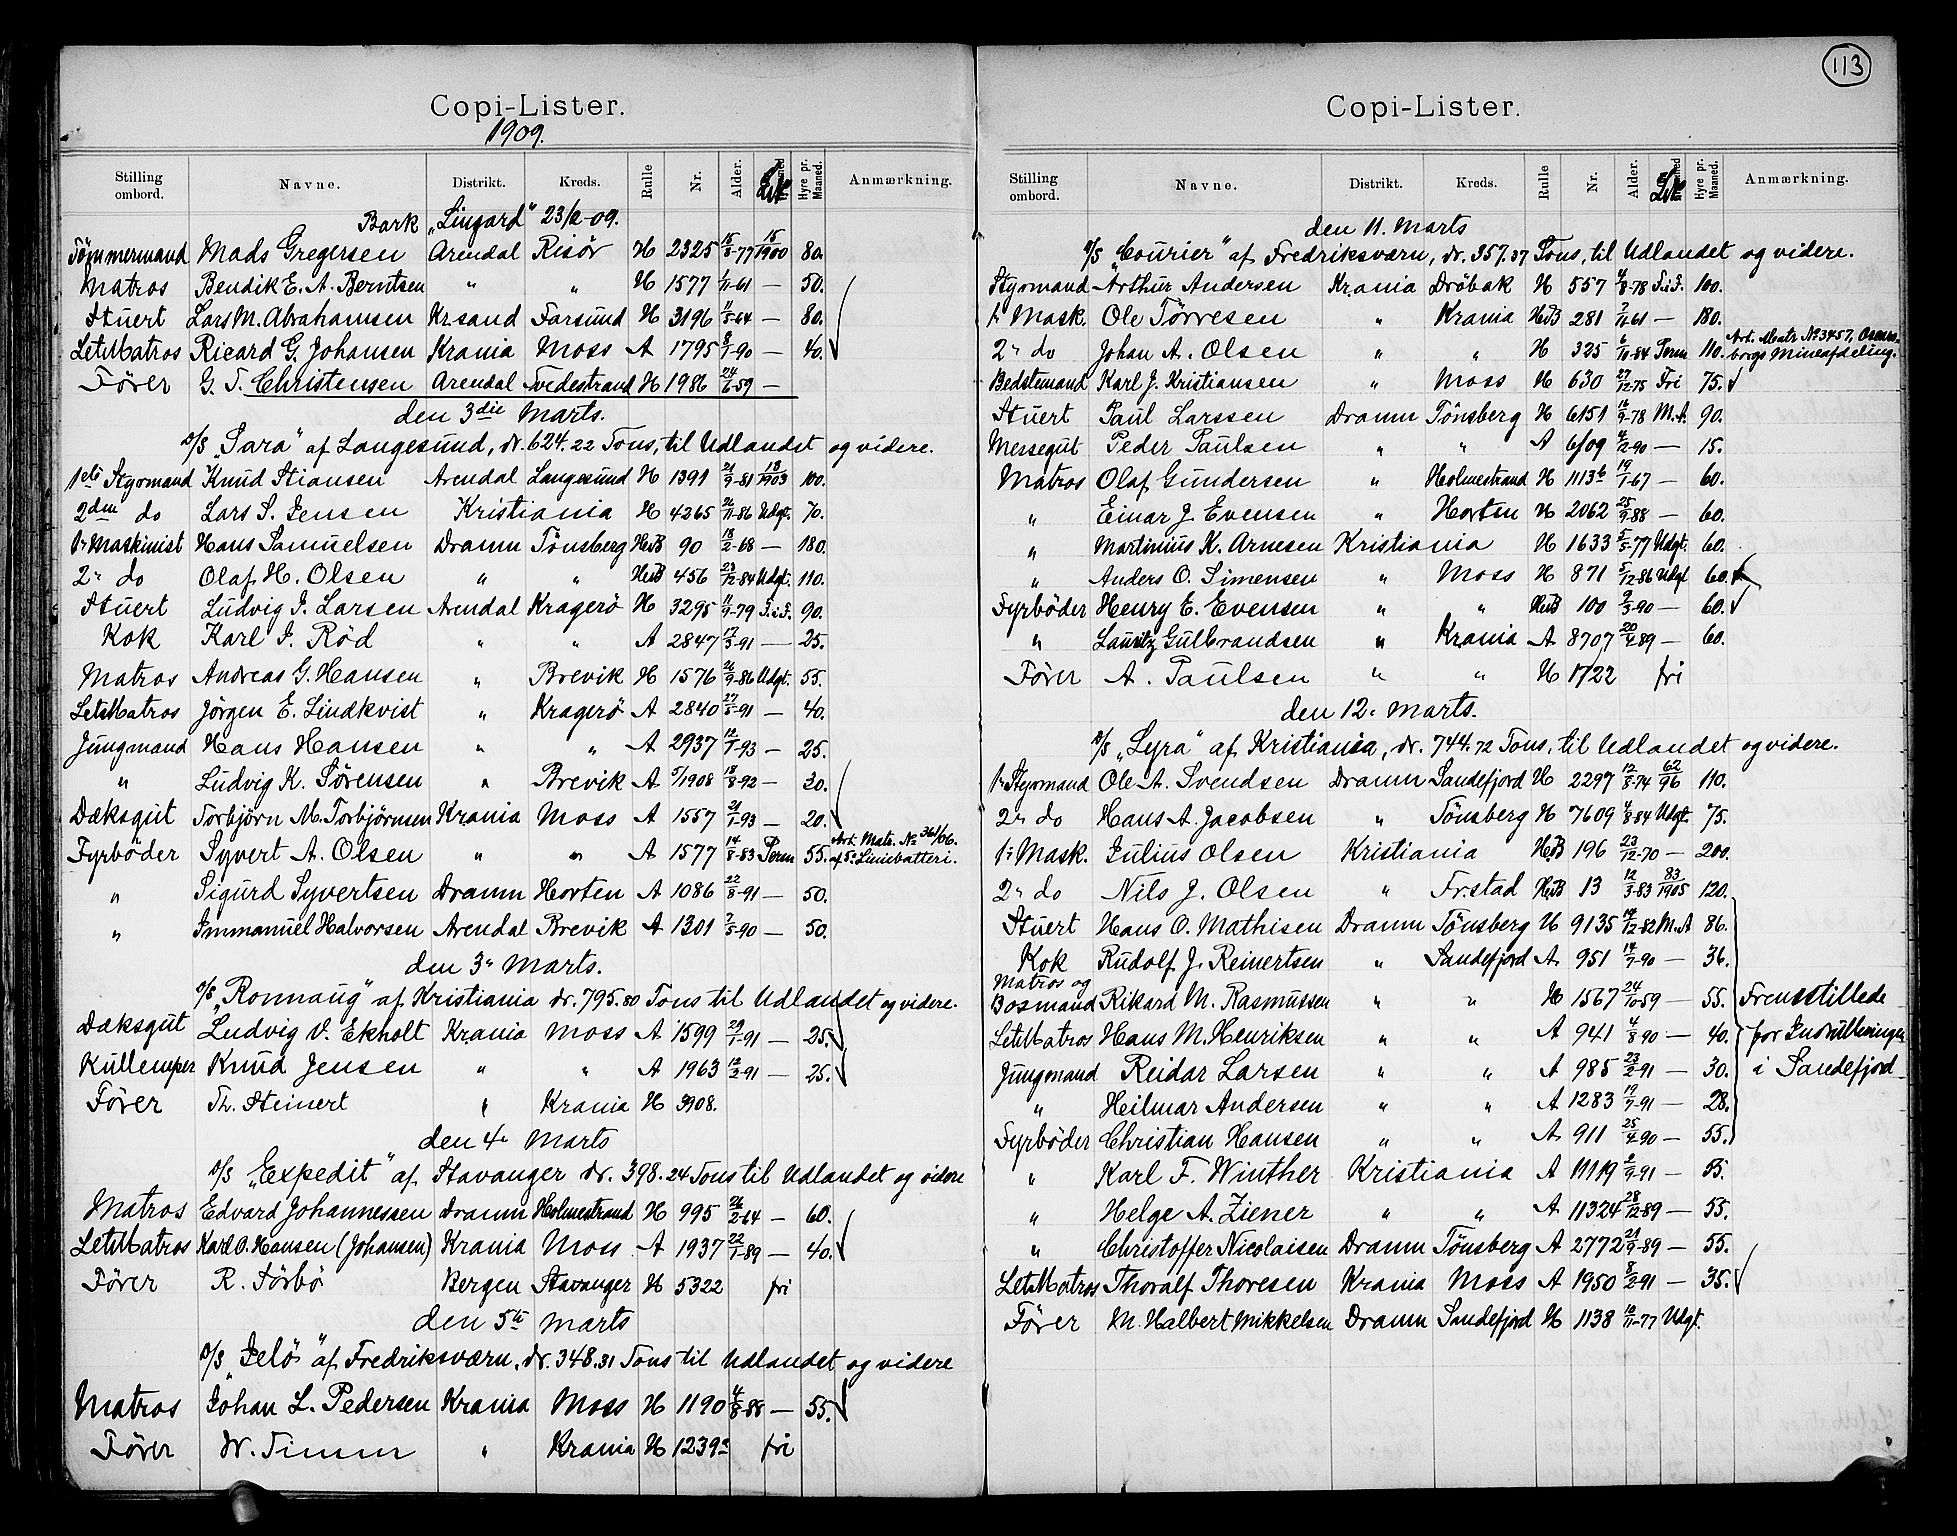 113
Copi-Lister.
1909.
Stilling ombord. Navne. Distrikt. Kreds. Rulle Nr. Alder. Hyre pr. Maaned. Anmærkning.
Bark „Lingard" 23/2-09.
Tömmermand Mads Gregersen Arendal Risör H 2325 15/8-77 15/1900 80.
Matros Bendik E. A. Berntsen " " H 1577 1/11-61 — 50.
Stuert Lars M. Abrahamsen Kr.sand Farsund H 3196 11/5-64 — 80.
LetMatros Ricard G. Johansen Krania Moss A 1795 8/1-90 — 40.
Förer G. T. Christensen Arendal Tvedestrand H 1986 24/6-59 —
den 3die Marts.
D/S „Sara" af Langesund, dr. 624.22 Tons, til Udlandet og videre.
1ste Styrmand Knud Stiansen Arendal Langesund H 1391 21/9-81 13/1903 100.
2den do Lars S. Jensen Kristiania H 4265 26/11-86 Udgt. 70.
1e Maskinist Hans Samuelsen Dramn Tönsberg HuB 90 18/2-68 — 180.
2n do Olaf H. Olsen " " HuB 456 23/12-84 Udgt. 110.
Stuert Ludvig J. Larsen Arendal Kragerö H 3295 11/9-79 T.i.F. 90.
Kok Karl J. Röd " " A 2847 17/3-91 — 25.
Matros Andreas G. Hansen " Brevik H 1576 26/9-86 Udgt. 55.
LetMatros Jörgen E. Lindkvist " Kragerö A 2840 27/5-91 — 40.
Jungmand Hans Hansen " " A 2937 12/1-93 — 25.
" Ludvig K. Sörensen " Brevik A 5/1908 18/8-92 — 20.
Dæksgut Torbjörn M. Torbjörnsen Krania Moss A 1557 21/1-93 — 20.
Fyrböder Syvert A. Olsen " " A 1577 14/8-83 Perm 55. Art. Matr. No 361/06. af 5. Liniebatteri.
" Sigurd Syvertsen Dramn Horten A 1086 22/8-91 — 50.
" Immanuel Halvorsen Arendal Brevik A 1301 7/5-90 — 50.
den 3n Marts.
D/S „Ronnaug" af Kristiania dr. 795.80 Tons til Udlandet og videre.
Dæksgut Ludvig V. Ekholt Krania Moss A 1599 29/1-91 — 25.
Kullemper Knud Jensen " " A 1963 12/2-91 — 25.
Förer Th. Steinert " Krania H 3908.
den 4n Marts
D/S „Expedit" af Stavanger dr. 398.24 Tons til Udlandet og videre
Matros Edvard Johannessen Dramn Holmestrand H 995 26/2-64 — 60.
LetMatros Karl O. Hansen (Johansen) Krania Moss A 1937 22/1-89 — 40.
Förer R. Törbö Bergen Stavanger H 5322 fri
den 5te Marts
D/S „Jelö" af Fredriksværn, dr. 348.31 Tons til Udlandet og videre
Matros Johan L. Pedersen Krania Moss H 1190 4/8-88 — 55.
Förer W. Timm " Krania H 1239 fri
Copi-Lister.
Stilling ombord. Navne. Distrikt. Kreds. Rulle Nr. Alder. Hyre pr. Maaned. Anmærkning.
den 11. Marts
D/S „Courier" af Fredriksværn, dr. 357.37 Tons, til Udlandet og videre.
Styrmand Arthur Andersen Krania Dröbak H 557 4/8-78 T.i.F. 100.
1e Mask. Ole Törresen " Krania HuB 281 7/11-61 — 180.
2n do Johan A. Olsen " " H 325 6/11-84 Perm 110. Art. Matr. No 3457, Oscarsborgs Mineafdeling.
Bedstemand Karl J. Kristiansen " Moss H 630 27/12-75 Fri 75.
Stuert Paul Larssen Dramn Tönsberg H 6151 16/9-78 M.A. 90.
Messegut Peder Paulsen " " A 6/09 4/2-90 — 15.
Matros Olaf Gundersen " Holmestrand H 1113b 19/1-67 — 60.
" Einar J. Evensen " Horten H 2062 25/9-88 — 60.
" Martinius K. Arnesen Kristiania H 1633 5/5-77 Udgt. 60.
" Anders O. Simensen " Moss H 871 5/12-86 Udgt 60.
Fyrböder Henry E. Evensen " " HuB 100 9/3-90 — 60.
" Lauritz Gulbrandsen " Krania A 8707 20/4-89 — 60.
Förer A. Paulsen " " H 1722 fri
den 12. Marts.
D/S „Lyra" af Kristiania, dr. 744.72 Tons, til Udlandet og videre.
1e Styrmand Ole A. Svendsen Dramn Sandefjord H 2297 12/8-74 62/96 110.
2n do Hans A. Jacobsen " Tönsberg H 7609 4/8-84 Udgt. 75.
1e Mask. Julius Olsen Kristiania HuB 196 23/12-70 — 200.
2n do Nils J. Olsen " Fr.stad HuB 13 12/3-83 83/1905 120.
Stuert Hans O. Mathisen Dramn Tönsberg H 9135 14/12-82 M.A 86.
Kok Rudolf J. Reinertsen " Sandefjord A 951 14/7-90 — 36.
Matros og Bosmand Rikard M. Rasmussen " " H 1567 24/10-59 — 55. Fremstillede
LetMatros Hans M. Henriksen " " A 941 4/8-90 — 40. for Indrulleringen
Jungmand Reidar Larsen " " A 985 23/2-91 — 30. i Sandefjord
" Heilmar Andersen " " A 1283 19/7-91 — 28.
Fyrböder Christian Hansen " " A 911 25/4-90 — 55.
" Karl F. Winther Kristiania A 11119 2/9-91 — 55.
" Helge A. Ziener " " A 11324 28/12-89 — 55.
" Christoffer Nicolaisen Dramn Tönsberg A 2772 21/9-89 — 55.
LetMatros Thoralf Thoresen Krania Moss A 1950 8/2-91 — 35.
Förer M. Halbert Mikkelsen Dramn Sandefjord H 1138 10/11-77 Udgt.